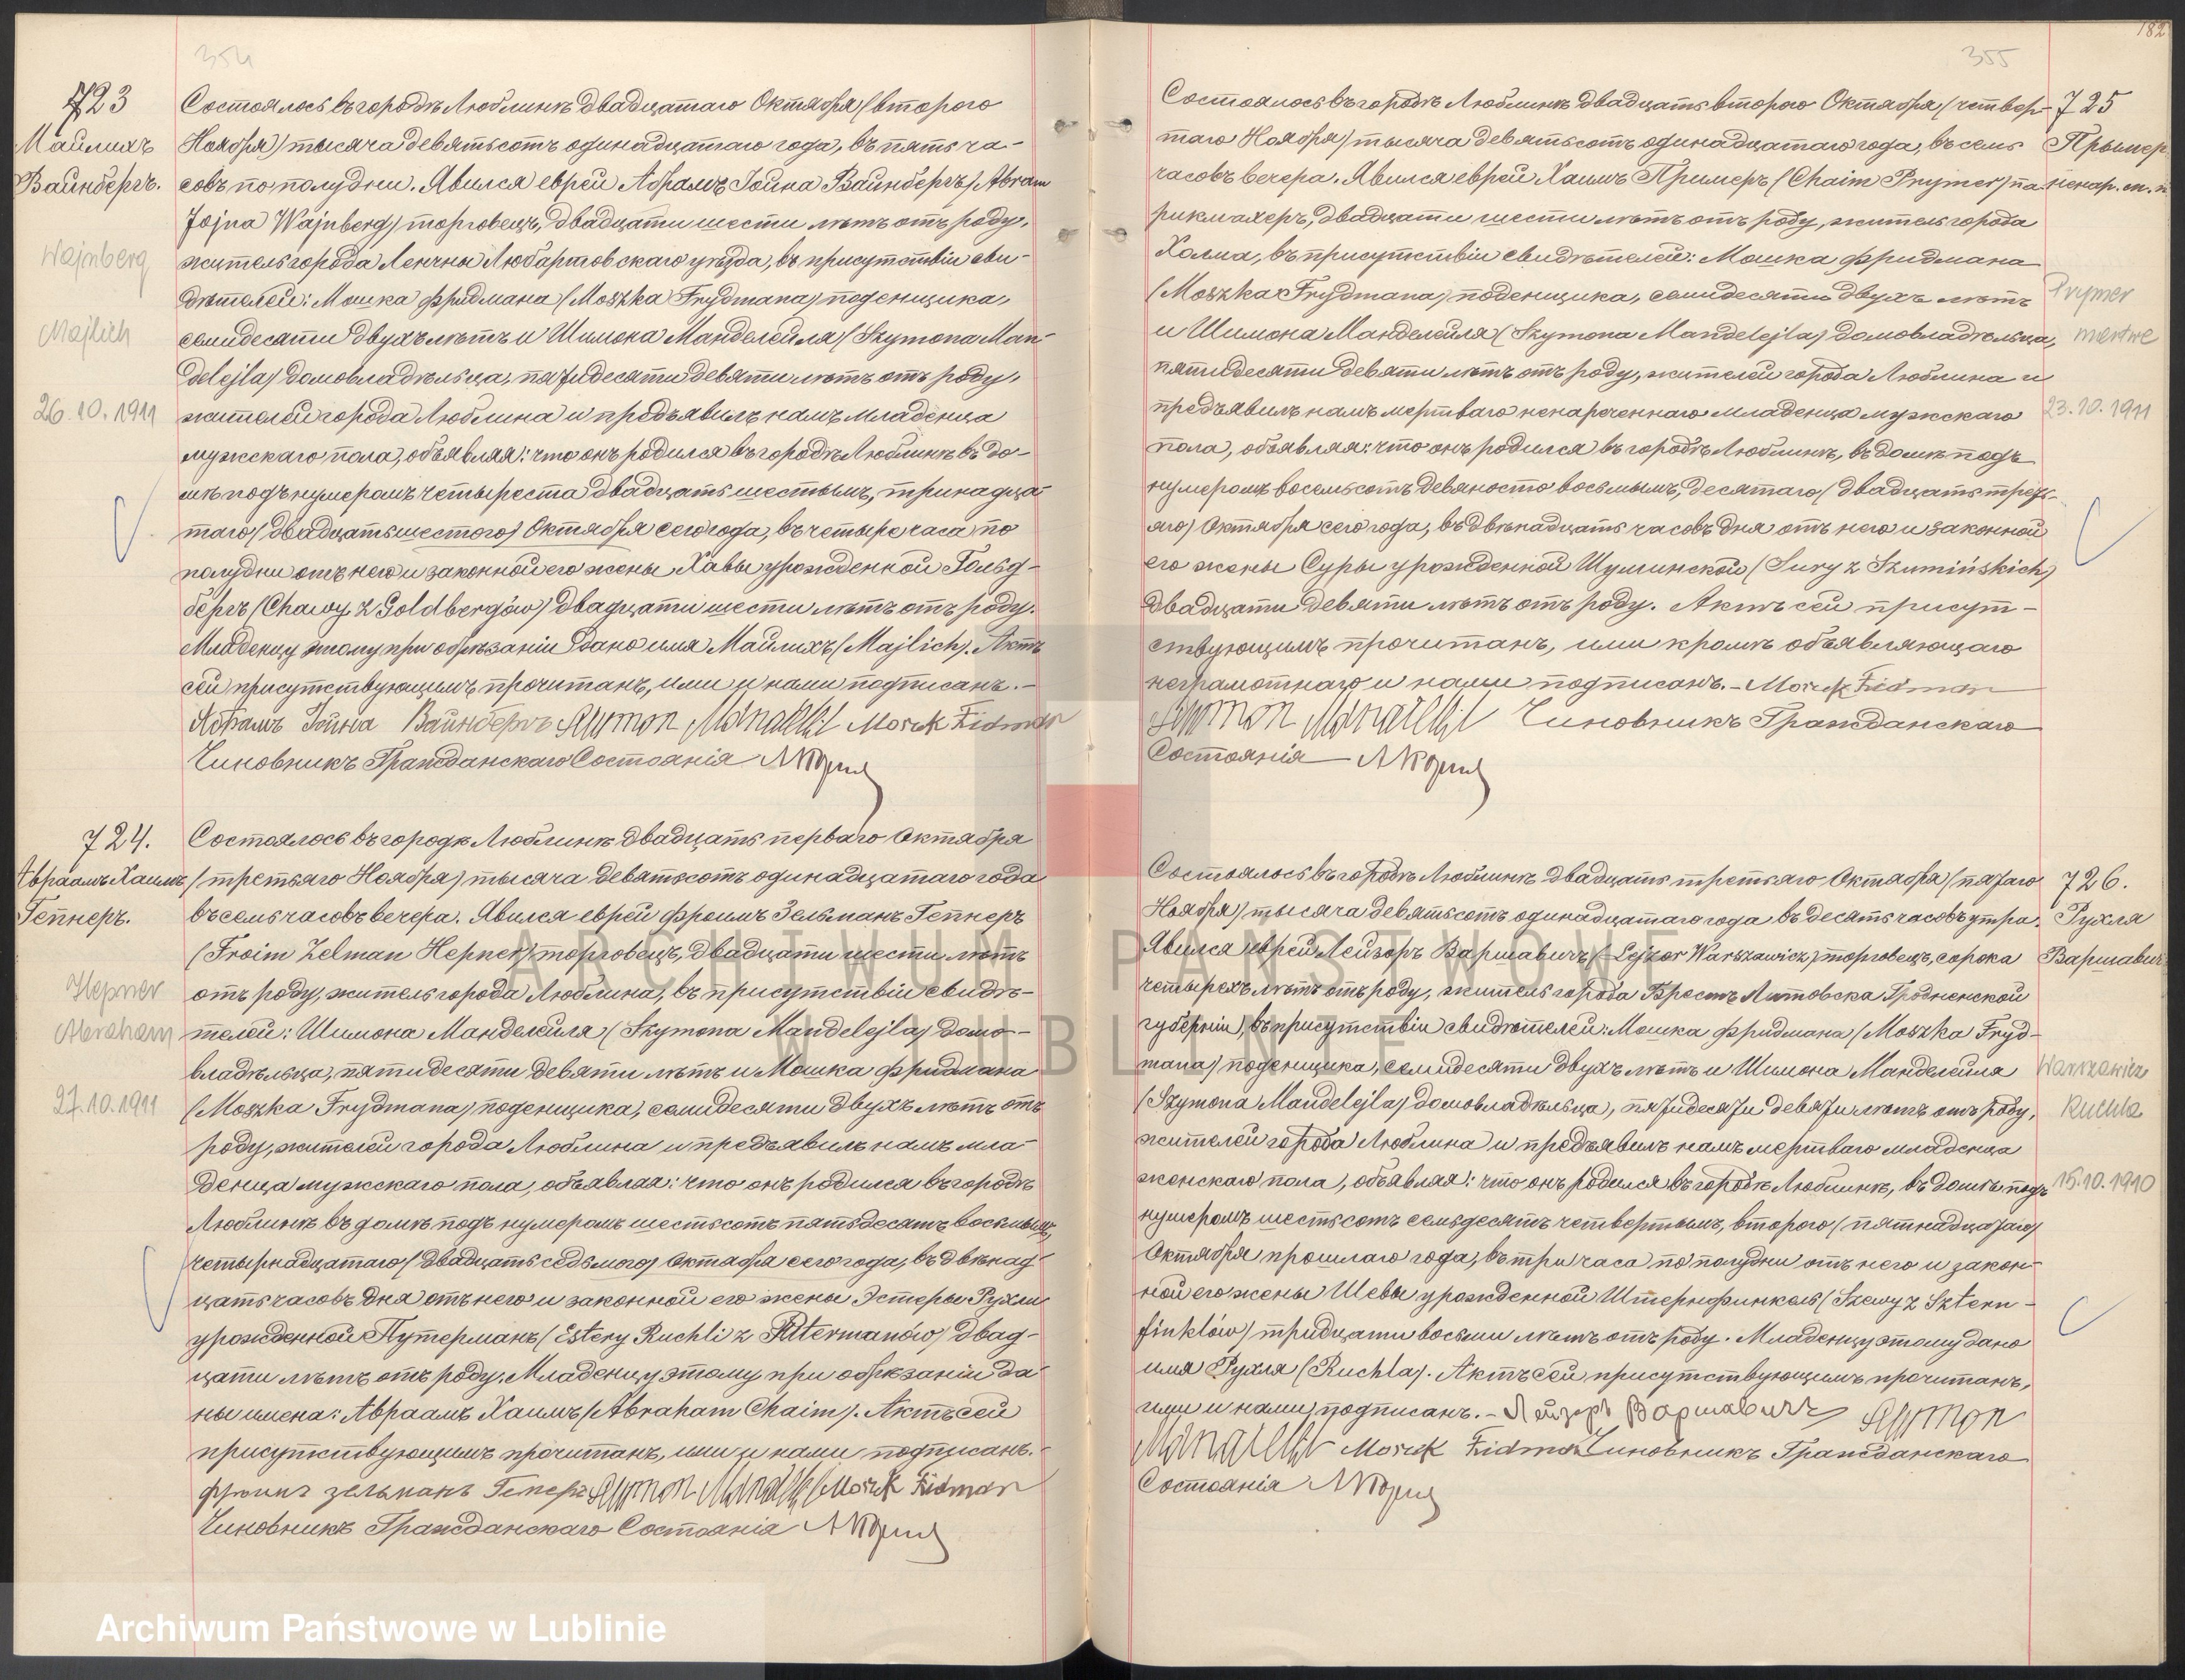 354
723
Майлихъ
Вайнбергъ.
Wajnberg
Majlich
26.10.1911
Состоялось въ городѣ Люблинѣ двадцатаго Октября (второго
Ноября) тысяча девятьсотъ одинадцатаго года, въ пять ча-
совъ по полудни. Явился еврей Абрамъ Іойна Вайнбергъ (Abram
Jojna Wajnberg) торговецъ, двадцати шести лѣтъ отъ роду,
житель города Ленчны Любартовскаго уѣзда, въ присутствіи сви-
дѣтелей: Мошка Фридмана (Moszka Frydmana) поденщика,
семидесяти двухъ лѣтъ и Шимона Манделейля (Szymona Man-
delejla) домовладѣльца, пятидесяти девяти лѣтъ отъ роду,
жителей города Люблина и предъявилъ намъ младенца
мужескаго пола, объявляя: что онъ родился въ городѣ Люблинѣ въ до-
мѣ подъ нумеромъ четыреста двадцать шестымъ, тринадца-
таго (двадцать шестого) Октября сего года, въ четыре часа по
полудни отъ него и законной его жены Хавы урожденной Гольд-
бергъ (Chawy z Goldbergów) двадцати шести лѣтъ отъ роду.
Младенцу этому при обрѣзаніи дано имя Майлихъ (Majlich). Актъ
сей присутствующимъ прочитанъ, ими и нами подписанъ.-
Абрамъ Іойна Вайнбергъ Szymon Mandelejl Moszk Fridman
Чиновникъ Гражданскаго Состоянія
724.
Авраамъ Хаимъ
Гепнеръ.
Hepner
Abraham
27.10.1911
Состоялось въ городѣ Люблинѣ двадцать перваго Октября
(третьяго Ноября) тысяча девятьсотъ одинадцатаго года
въ семь часовъ вечера. Явился еврей Фроимъ Зельманъ Гепнеръ
(Froim Zelman Hepner) торговецъ, двадцати шести лѣтъ
отъ роду, житель города Люблина, въ присутствіи свидѣ-
телей: Шимона Манделейля (Szymona Mandelejla) домо-
владѣльца, пятидесяти девяти лѣтъ и Мошка Фридмана
(Moszka Frydmana) поденщика, семидесяти двухъ лѣтъ отъ
роду, жителей города Люблина и предъявилъ намъ мла-
денца мужскаго пола, объявляя: что онъ родился въ городѣ
Люблинѣ въ домѣ подъ нумеромъ шестьсотъ пятьдесятъ восьмымъ,
четырнадцатаго (двадцать седьмого) Октября сего года, въ двѣнад-
цать часовъ дня отъ него и законной его жены Эстеры Рухли
урожденной Путерманъ (Estery Ruchli z Putermanów) двад-
цати лѣтъ отъ роду. Младенцу этому при обрѣзаніи да-
ны имена: Авраамъ Хаимъ (Abraham Chaim). Актъ сей
присутствующимъ прочитанъ, ими и нами подписанъ.-
Фроимъ Зельманъ Гепнеръ Szymon Mandelejl Moszk Fridman
Чиновникъ Гражданскаго Состоянія
182
355
725
Прымер
ненар. м. п.
Prymer
martwe
23.10.1911
Состоялось въ городѣ Люблинѣ двадцать второго Октября (четвер-
таго Ноября) тысяча девятьсотъ одинадцатаго года, въ семь
часовъ вечера. Явился еврей Хаимъ Примеръ (Chaim Prymer) па-
рикмахеръ, двадцати шести лѣтъ отъ роду, житель города
Холма, въ присутствіи свидѣтелей: Мошка Фридмана
(Moszka Frydmana) поденщика, семидесяти двухъ лѣтъ
и Шимона Манделейля (Szymona Mandelejla) домовладѣльца,
пятидесяти девяти лѣтъ отъ роду, жителей города Люблина и
предъявилъ намъ мертваго ненареченнаго младенца мужскаго
пола, объявляя: что онъ родился въ городѣ Люблинѣ, въ домѣ подъ
нумеромъ восемьсотъ девяносто восьмымъ, десятаго (двадцать треть-
яго) Октября сего года, въ двѣнадцать часовъ дня отъ него и законной
его жены Суры урожденной Шуминской (Sury z Szumińskich)
двадцати девяти лѣтъ отъ роду. Актъ сей присут-
ствующимъ прочитанъ, ими кромѣ объявляющаго
неграмотнаго и нами подписанъ.- Moszk Fridman
Szymon Mandelejl Чиновникъ Гражданскаго
Состоянія
726.
Рухля
Варшавич
Warszawicz
Ruchla
15.10.1910
Состоялось въ городѣ Люблинѣ двадцать третьяго Октября (пятаго
Ноября) тысяча девятьсотъ одинадцатаго года въ десять часовъ утра.
Явился еврей Лейзоръ Варшавичъ (Lejzor Warszawicz) торговецъ, сорока
четырехъ лѣтъ отъ роду, житель города Брестъ Литовска Гродненской
губерніи, въ присутствіи свидѣтелей: Мошка Фридмана (Moszka Fryd-
mana) поденщика, семидесяти двухъ лѣтъ и Шимона Манделейля
(Szymona Mandelejla) домовладѣльца, пятидесяти девяти лѣтъ отъ роду,
жителей города Люблина и предъявилъ намъ мертваго младенца
женскаго пола, объявляя: что онъ родился въ городѣ Люблинѣ, въ домѣ подъ
нумеромъ шестьсотъ семьдесятъ четвертымъ, второго (пятнадцатаго)
Октября прошлаго года, въ три часа по полудни отъ него и закон-
ной его жены Шевы урожденной Штернфинкель (Szewy z Sztern-
finklów) тридцати восьми лѣтъ отъ роду. Младенцу этому дано
имя Рухля (Ruchla). Актъ сей присутствующимъ прочитанъ,
ими и нами подписанъ.- Лейзоръ Варшавичъ Szymon
Mandelejl Moszk Fridman Чиновникъ Гражданскаго
Состоянія
ARCHIWUM PAŃSTWOWE
W LUBLINIE
Archiwum Państwowe w Lublinie